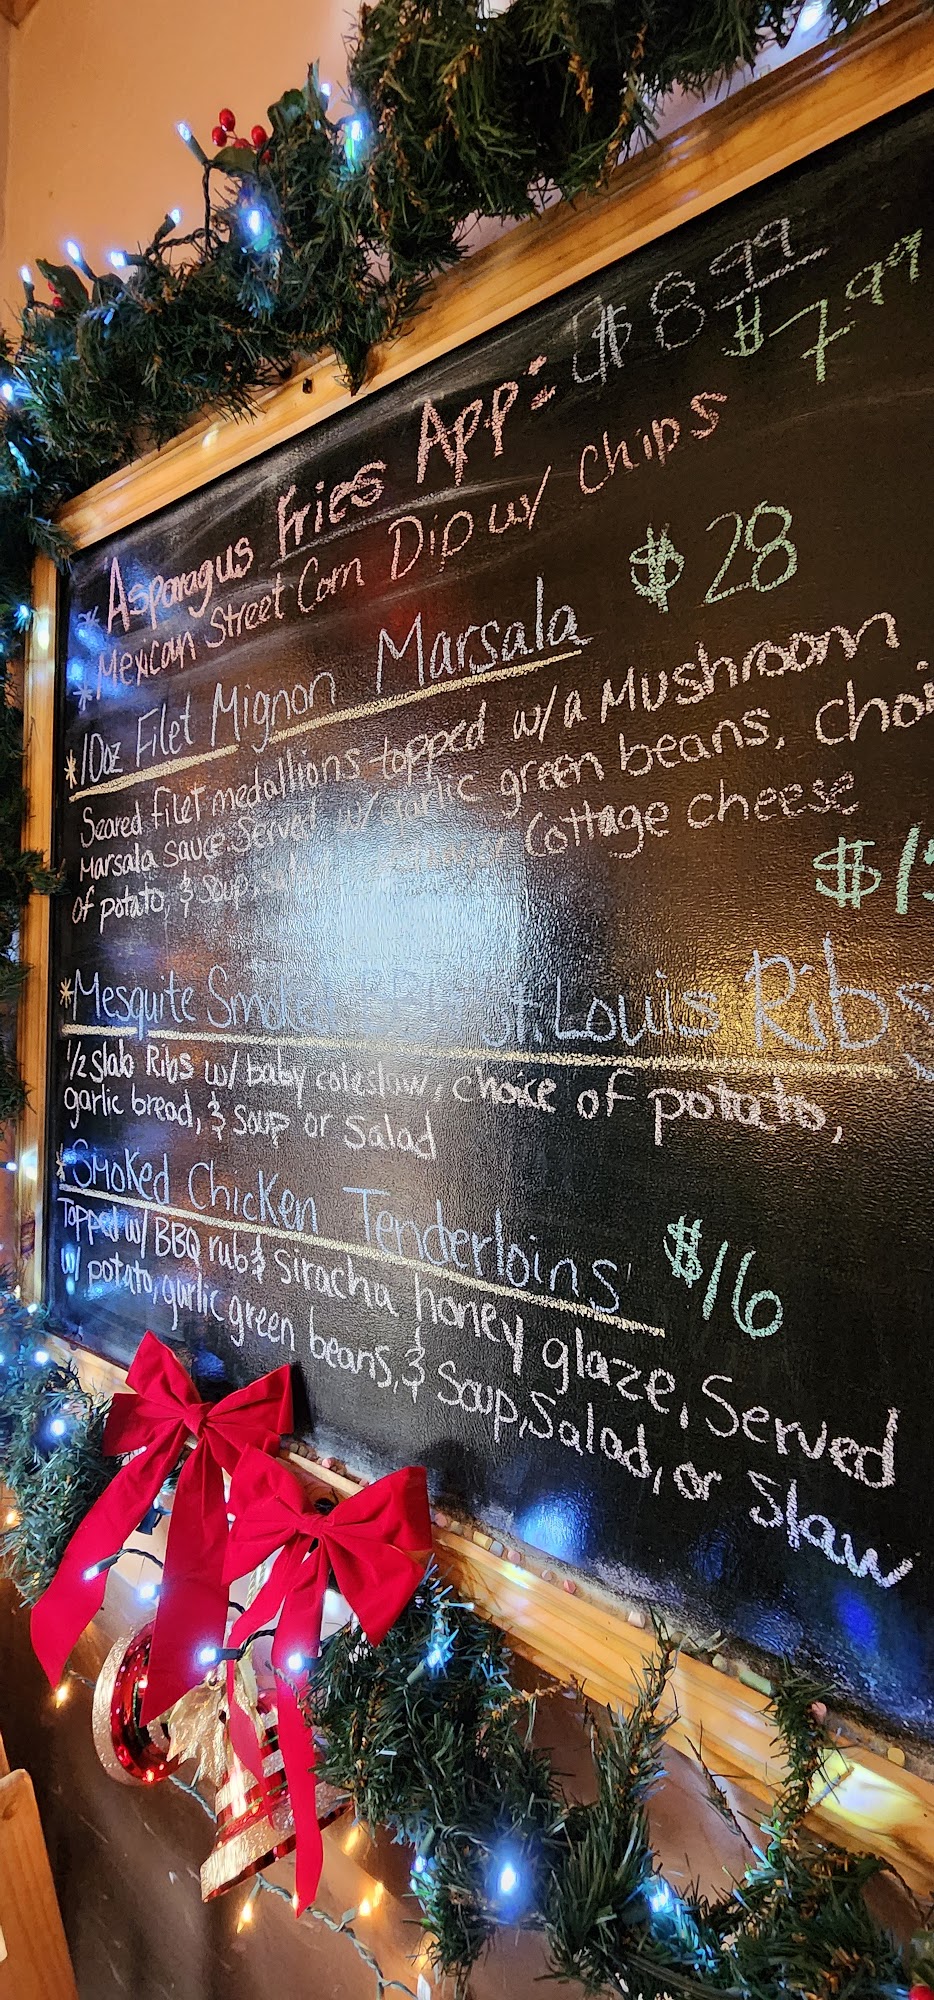 * Asparagus Fries App: $8.99
* Mexican Street Corn Dip w/ Chips $7.99
* 10oz Filet Mignon Marsala $28
Seared filet medallions topped w/a Mushroom
Marsala sauce. Served w/ garlic green beans, choi
of potato, & soup, Cottage cheese
$1
* Mesquite Smoke St. Louis Ribs
1/2 Slab Ribs w/ baby coleslaw, choice of potato,
garlic bread, & Soup or Salad
* Smoked Chicken Tenderloins $16
Topped w/ BBQ rub & Siracha honey glaze, Served
w/ potato, garlic green beans, & Soup, Salad, or Slaw